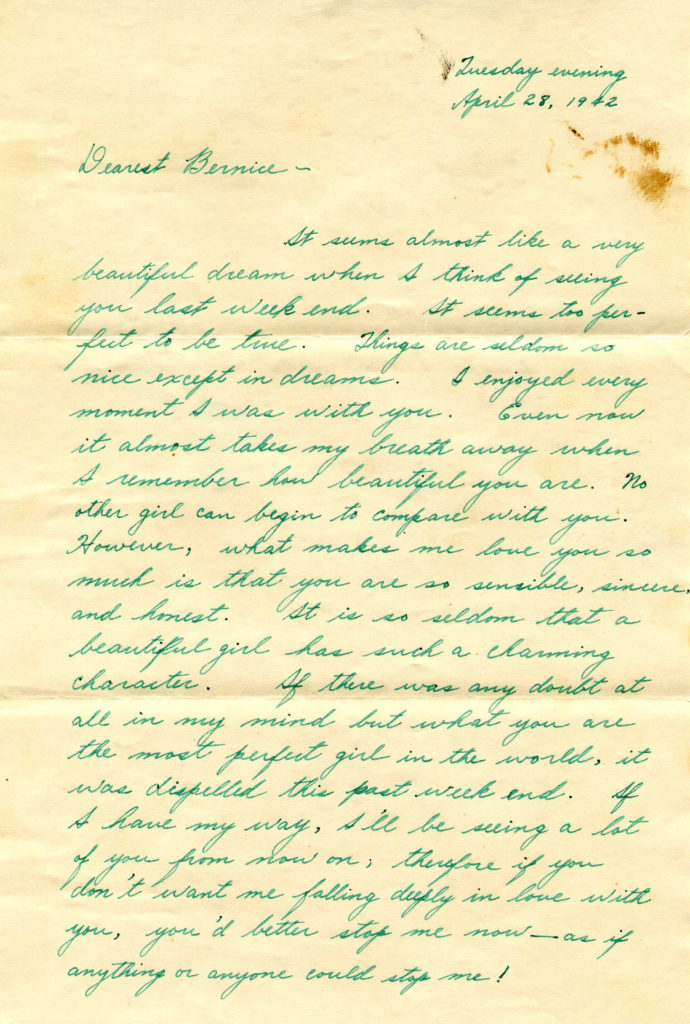 Tuesday evening
April 28, 1942
Dearest Bernice —
It seems almost like a very
beautiful dream when I think of seeing
you last week end. It seems too per-
fect to be true. Things are seldom so
nice except in dreams. I enjoyed every
moment I was with you. Even now
it almost takes my breath away when
I remember how beautiful you are. No
other girl can begin to compare with you.
However, what makes me love you so
much is that you are so sensible, sincere,
and honest. It is so seldom that a
beautiful girl has such a charming
character. If there was any doubt at
all in my mind but what you are
the most perfect girl in the world, it
was dispelled this past week end. If
I have my way, I'll be seeing a lot
of you from now on; therefore if you
don't want me falling deeply in love with
you, you'd better stop me now — as if
anything or anyone could stop me!